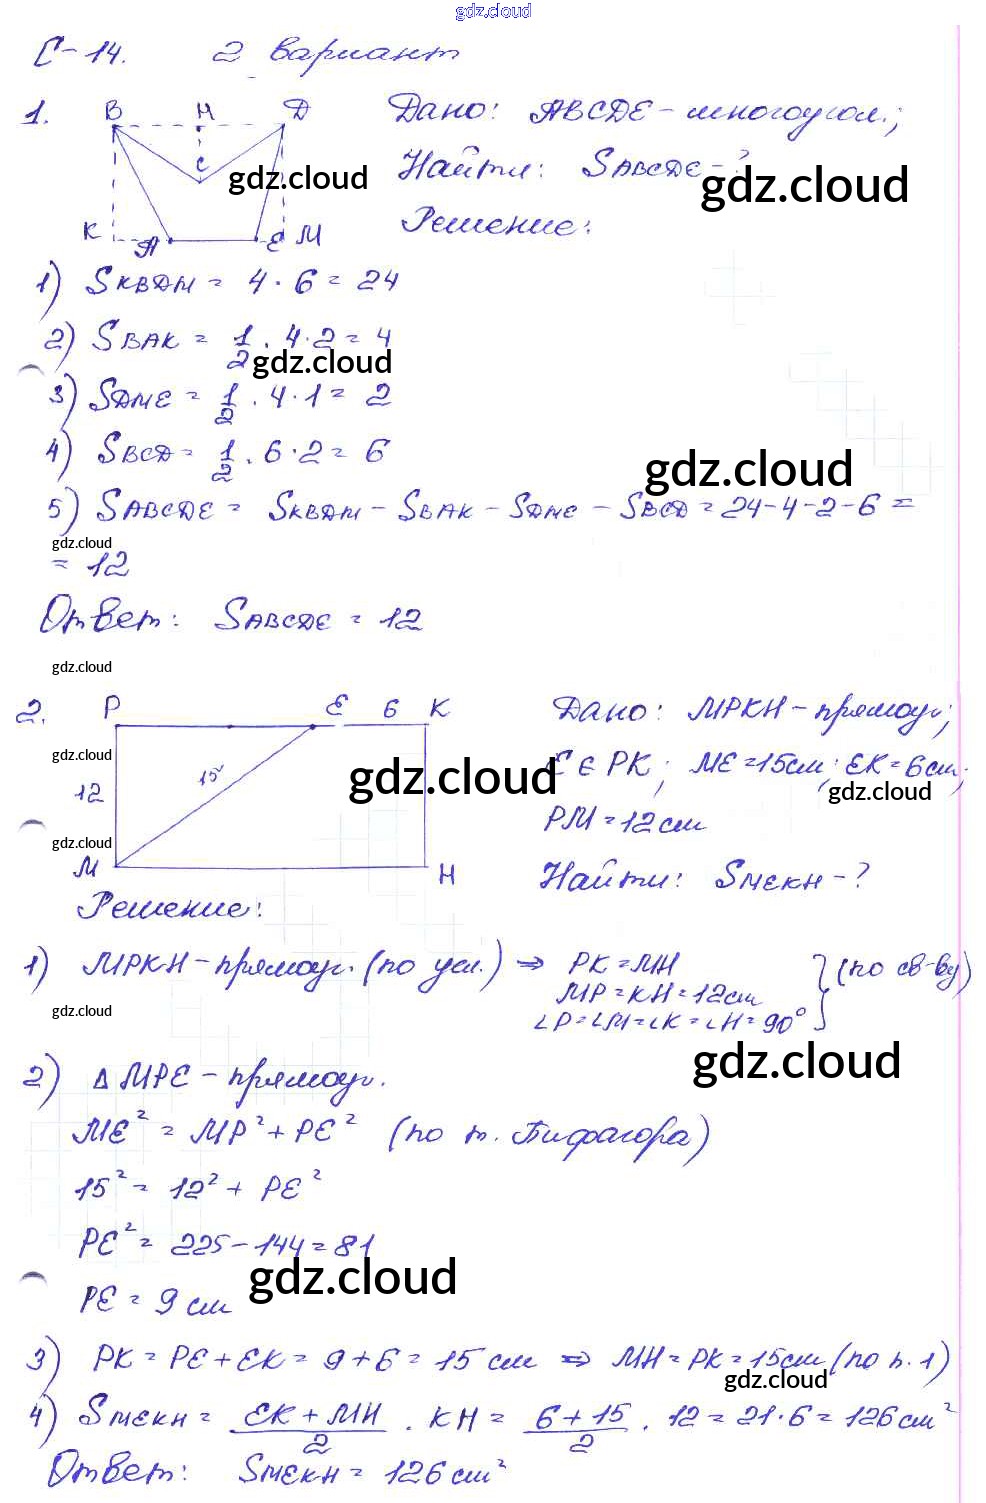 gdz.cloud
С-14. 2 вариант
1. B H D Дано: ABCDE - многоугол.;
C gdz.cloud Найти: SABCDE - ? gdz.cloud
K A E M Решение:
1) SKBDM = 4 · 6 = 24
2) SBAK = 1/2 · 4 · 2 = 4
gdz.cloud
3) SDME = 1/2 · 4 · 1 = 2
4) SBCD = 1/2 · 6 · 2 = 6
gdz.cloud
5) SABCDE = SKBDM - SBAK - SDME - SBCD = 24 - 4 - 2 - 6 =
gdz.cloud
= 12
Ответ: SABCDE = 12
gdz.cloud
2. P E 6 K Дано: MPKH - прямоуг.;
gdz.cloud 15 gdz.cloud E ∈ PK; ME = 15см; EK = 6см;
12 gdz.cloud
PM = 12 см
gdz.cloud
M H Найти: SMEKH - ?
Решение:
1) MPKH - прямоуг. (по усл.) ⇒ PK = MH
MP = KH = 12см
∠P = ∠M = ∠K = ∠H = 90° } (по св-ву)
gdz.cloud
gdz.cloud
2) Δ MPE - прямоуг.
ME² = MP² + PE² (по т. Пифагора)
15² = 12² + PE²
PE² = 225 - 144 = 81
gdz.cloud
PE = 9 см
3) PK = PE + EK = 9 + 6 = 15 см ⇒ MH = PK = 15см (по п. 1)
gdz.cloud
4) SMEKH = EK + MH/2 · KH = 6 + 15/2 · 12 = 21 · 6 = 126 см²
Ответ: SMEKH = 126 см²